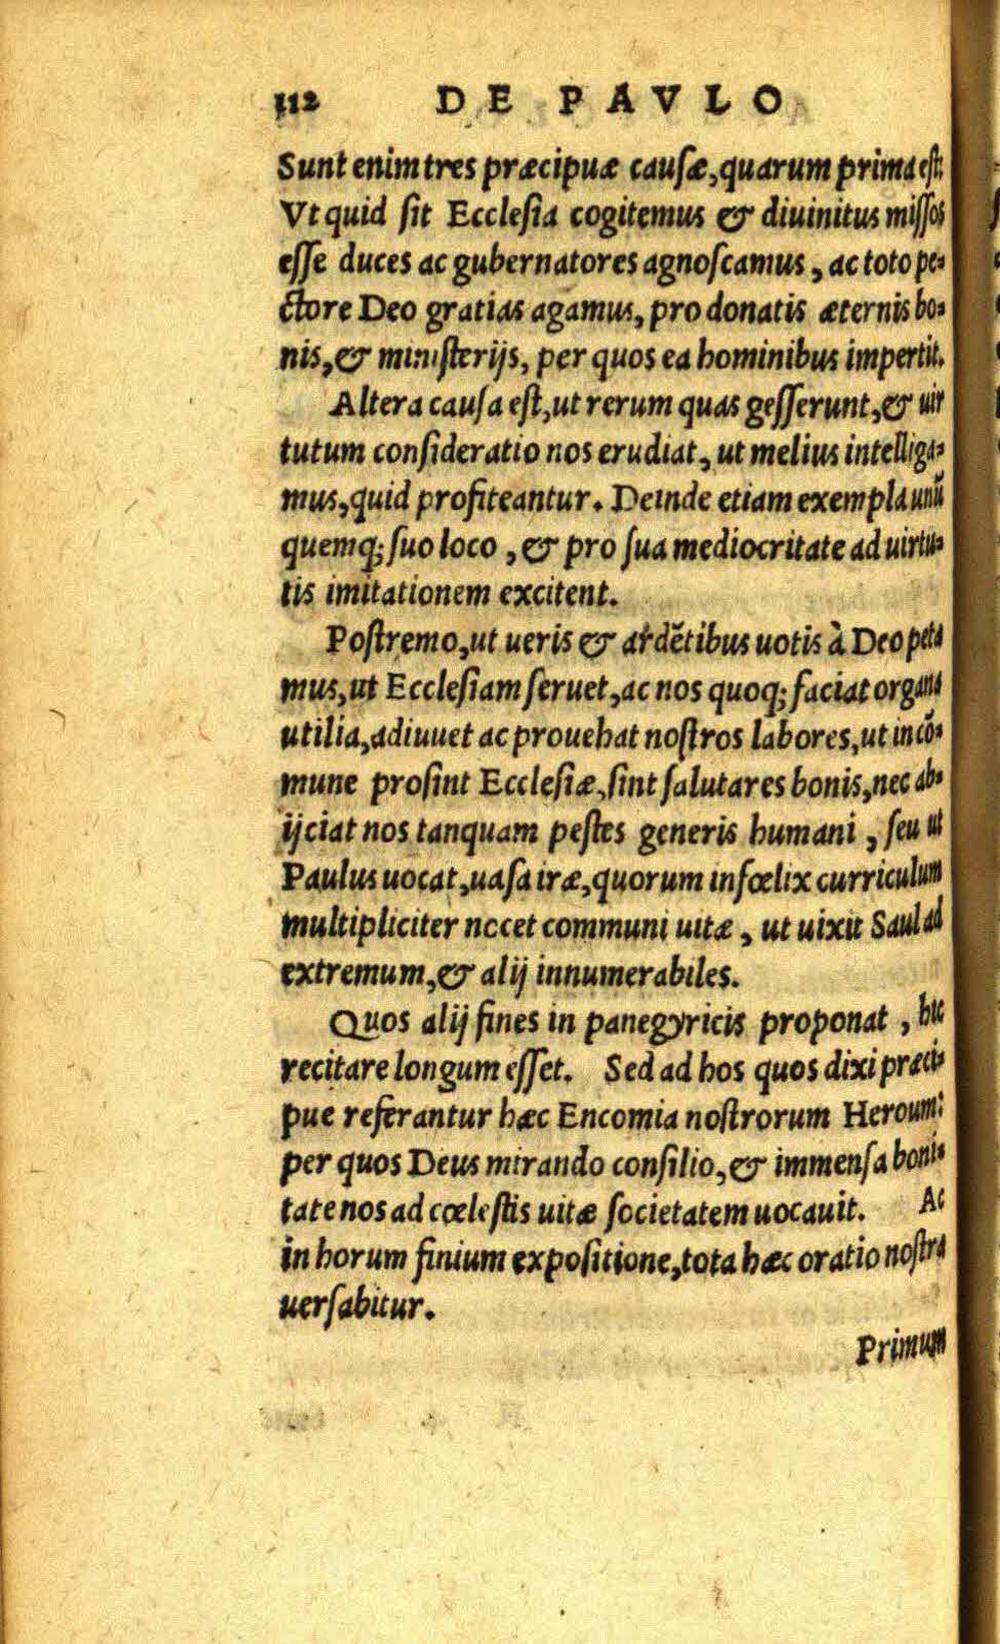 112 DE PAVLO
Sunt enim tres præcipuæ causæ, quarum prima est:
Vt quid sit Ecclesia cogitemus & diuinitus missos
esse duces ac gubernatores agnoscamus, ac toto pe-
ctore Deo gratias agamus, pro donatis æternis bo-
nis, & ministerijs, per quos ea hominibus impertit.
Altera causa est, ut rerum quas gesserunt, & uir
tutum consideratio nos erudiat, ut melius intelliga-
mus, quid profiteantur. Deinde etiam exempla unũ
quemq; suo loco, & pro sua mediocritate ad uirtu-
tis imitationem excitent.
Postremo, ut ueris & ardẽtibus uotis à Deo peta
mus, ut Ecclesiam seruet, ac nos quoq; faciat organa
utilia, adiuuet ac prouehat nostros labores, ut in cõ-
mune prosint Ecclesiæ, sint salutares bonis, nec ab-
ijciat nos tanquam pestes generis humani, seu ut
Paulus uocat, uasa iræ, quorum infœlix curriculum
multipliciter nocet communi uitæ, ut uixit Saul ad
extremum, & alij innumerabiles.
Quos alij fines in panegyricis proponat, hic
recitare longum esset. Sed ad hos quos dixi præci-
pue referantur hæc Encomia nostrorum Heroum:
per quos Deus mirando consilio, & immensa boni-
tate nos ad cœlestis uitæ societatem uocauit. Ac
in horum finium expositione, tota hæc oratio nostra
uersabitur.
Primum